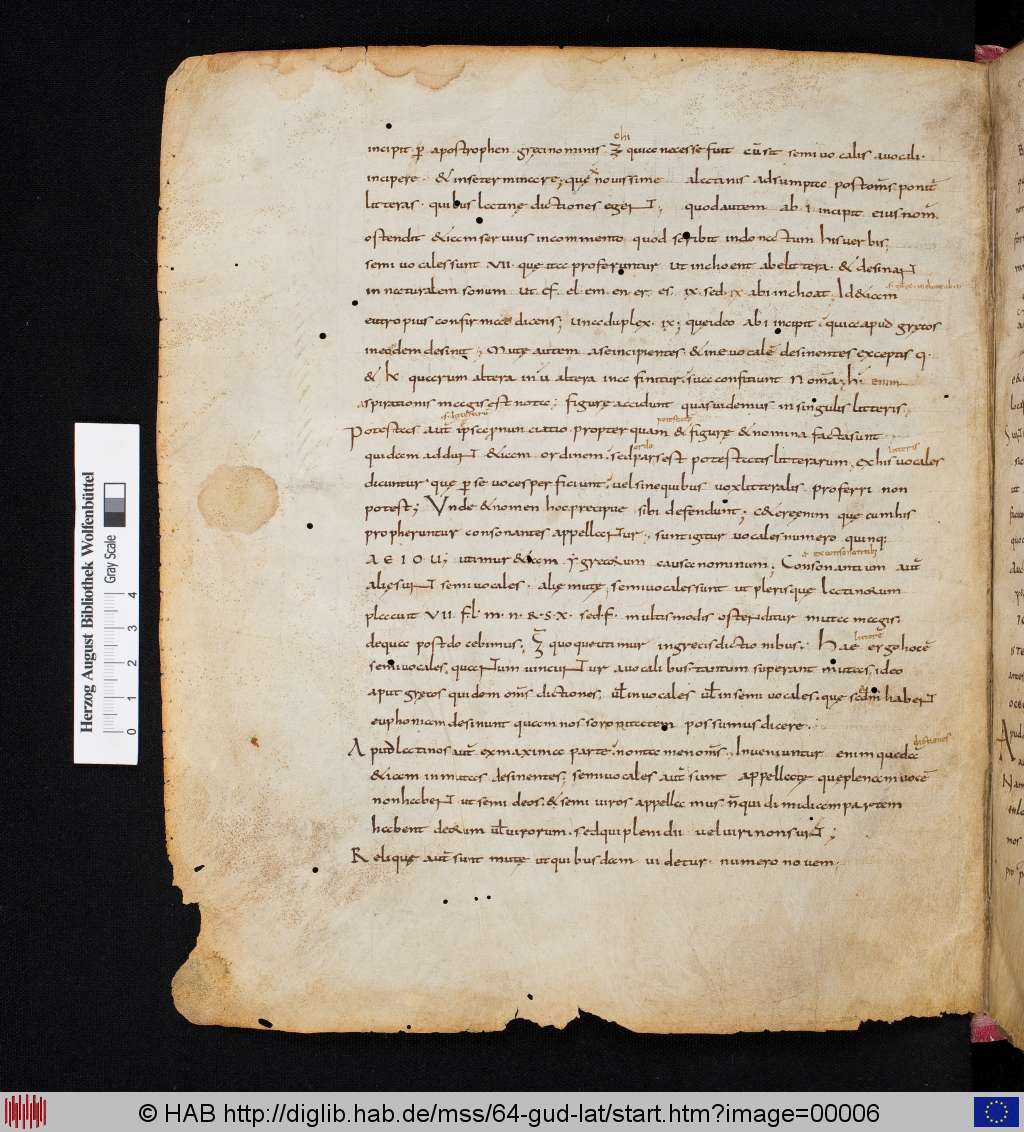 incipit p̄ apostrophen grecinominis ʒ quia necesse fuit cū sit semivocalis avocali.
incipere · & inse terminare; quę novissime alatinis adsumpta post om̄s ponit̄
litteras · quibus latinę dictiones egent; quod autem ab · i · incipit eius nom̄.
ostendit & iam servius incommento quod scribit indonatum his verbis;
semivocales sunt · VII · quę ita proferuntur ut inchoent ab e littera · & desinant
in naturalem sonum ut ef · el · em · en · er · es · ix · sed · ix ab i inchoat. Id & iam
eutropius confirmat dicens; una duplex · ix; que ideo ab i incipit · quia apud grecos
in eadem desinit; Mutę autem a se incipientes · & in e vocalē desinentes exceptis q ·
& k quarum altera in u altera in a finitur · sua conficiunt nom̄a; h enim
aspirationis magis est nota; figurę accidunt quas videmus in singulis litteris;
Potestas aut̄ ipsa pronunciatio · propter quam & figurę & nomina facta sunt
quidam addunt & iam ordinem · sed pars est potestatis litterarum; ex his vocales
dicuntur quę p̄ se voces perficiunt, vel sine quibus vox litteralis proferri non
potest; Unde & nomen hoc precipue sibi defendunt; cetere enim que cum his
propheruntur consonantes appellantur; sunt igitur vocales numero quinq;
A E I O U; utimur & iam y grecorum causa nominum; Consonantium aut̄
alię sunt semivocales · alię mutę; semivocales sunt ut plerisque latinorum
placuit VII · f · l · m · n · R · S · X · sed · f · multis modis ostenditur muta magis;
de qua post docebimus; ʒ quoque utimur in grecis dictionibus; Hae ergo hoc ē
semivocales, quantum vincuntur a vocalibus tantum superant mutas; ideo
aput grecos quidem om̄s dictiones, vel̄ in vocales vel̄ in semivocales, que secdm̄ habent
euphoniam desinunt quam nos sonoritatem possumus dicere;
Aput latinos aut̄ ex maxima parte, non tamen om̄s; Inveniuntur enim quedā
& iam in mutas desinentes; semivocales aut̄ sunt appellate que plenam vocē
non habent ut semideos, & semiviros appellamus n̄ qui dimidiam partem
habent deorum vel̄ virorum · sed qui pleni dii vel viri non sunt;
Reliquę aut̄ sunt mutę ut quibusdam videtur · numero novem ·
Herzog August Bibliothek Wolfenbüttel
Gray Scale
0 1 2 3 4
© HAB http://diglib.hab.de/mss/64-gud-lat/start.htm?image=00006